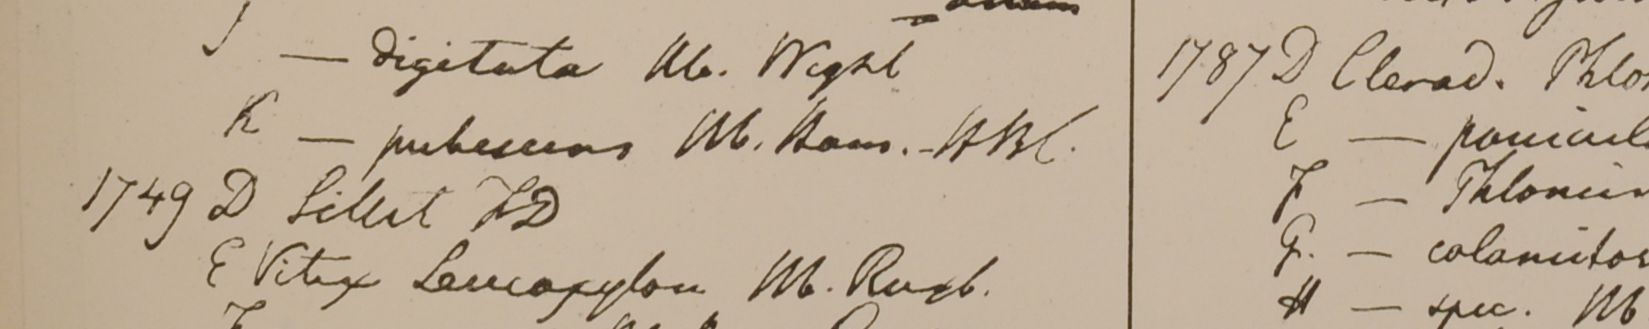 J — digitata Hb. Wight
K — pubescens Hb. Ham. - HBC.
1749 D Sillet FD
E Vitex Leucoxylon Hb. Roxb.
1787 D Clerod. Phlo
E — panicul
F — Phlomi
G. —
H — spec. Hb